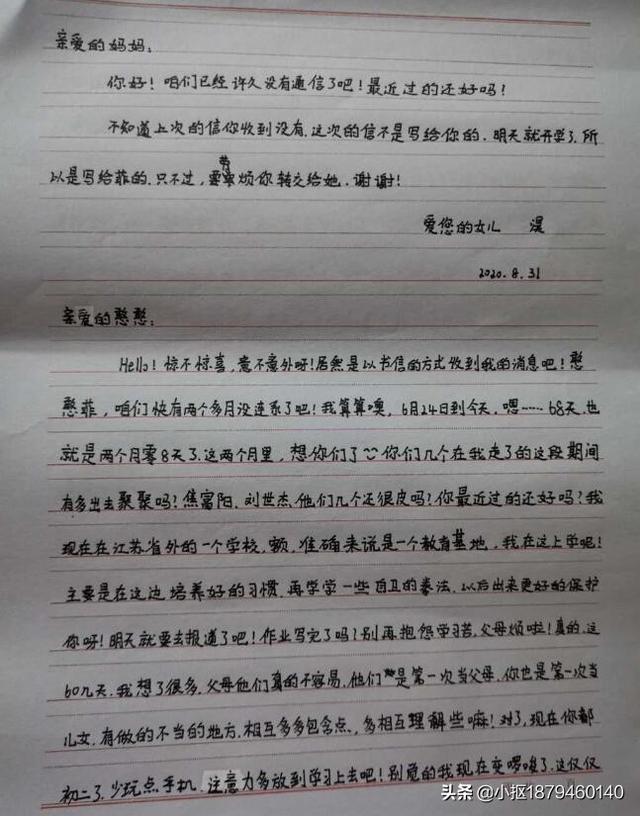 亲爱的妈妈:
你好!咱们已经许久没有通信了吧!最近过的还好吗!
不知道上次的信你收到没有,这次的信不是写给你的.明天就开学了.所
以是写给菲的.只不过,要劳烦你转交给她.谢谢!
爱您的女儿 湜
2020.8.31
亲爱的憨憨:
Hello!惊不惊喜,意不意外呀!居然是以书信的方式收到我的消息吧!憨
憨菲,咱们快有两个多月没连系了吧!我算算噢,6月24日到今天,嗯……68天.也
就是两个月零8天了.这两个月里,想你们了你们几个在我走了的这段期间
有多出去聚聚吗?焦富阳.刘世杰.他们几个还很皮吗?你最近过的还好吗?我
现在在江苏省外的一个学校,额,准确来说是一个教育基地,我在这上学呢!
主要是在这边培养好的习惯.再学学一些自卫的拳法.以后出来更好的保护
你呀!明天就要去报道了吧!作业写完了吗?别再抱怨学习苦,父母烦啦!真的.这
60几天.我想了很多.父母他们真的不容易.他们是第一次当父母.你也是第一次当
儿女.有做的不当的地方.相互多多包含点,多相互理解些嘛!对了,现在你都
初二了.少玩点手机.注意力多放到学习上去吧!别觉的我现在变啰嗦了.这仅仅
头条 @小抠1879460140